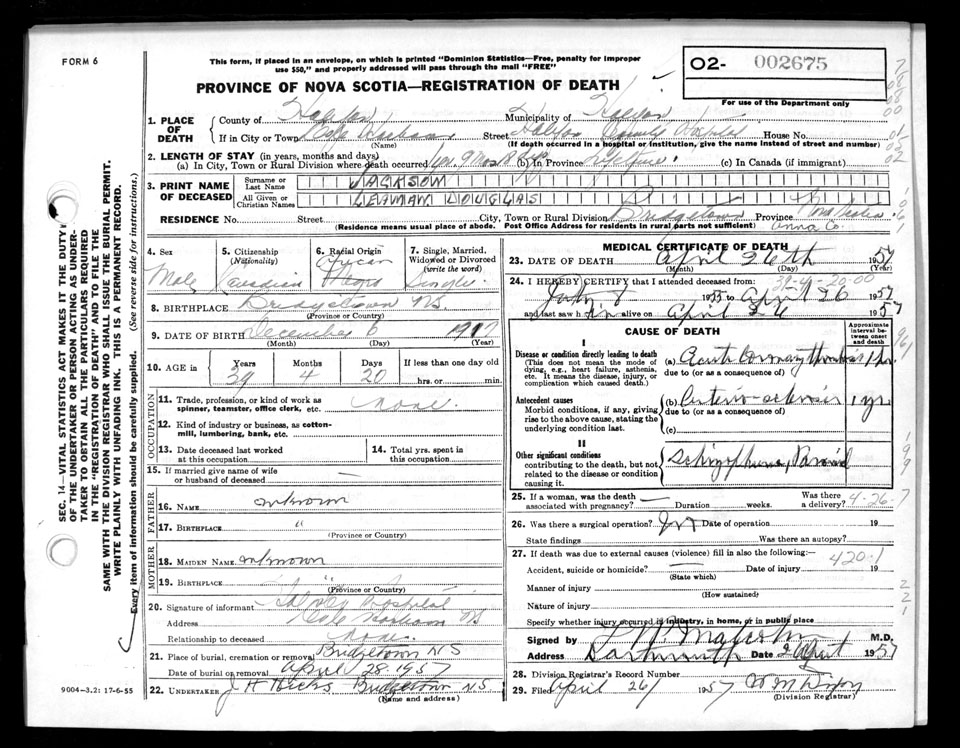 FORM 6
This form, if placed in an envelope, on which is printed "Dominion Statistics—Free, penalty for improper
use $50," and properly addressed will pass through the mail "FREE"
PROVINCE OF NOVA SCOTIA—REGISTRATION OF DEATH
O2- 002675
For use of the Department only
1. PLACE OF DEATH
County of Halifax Municipality of Halifax
If in City or Town Cole Harbour Street Halifax County Hospital House No.
(Name) (If death occurred in a hospital or institution, give the name instead of street and number)
2. LENGTH OF STAY (in years, months and days)
(a) In City, Town or Rural Division where death occurred 1 yr. 9 Mos 18 dys (b) In Province Lifetime. (c) In Canada (if immigrant)
3. PRINT NAME OF DECEASED
Surname or Last Name JACKSON
All Given or Christian Names LEAMAN DOUGLAS
RESIDENCE No. Street City, Town or Rural Division Bridgetown Province Nova Scotia
(Residence means usual place of abode. Post Office Address for residents in rural parts not sufficient) Anna Co.
4. Sex Male
5. Citizenship (Nationality) Canadian
6. Racial Origin African Negro
7. Single, Married, Widowed or Divorced (write the word) Single
8. BIRTHPLACE Bridgetown NS.
(Province or County)
9. DATE OF BIRTH December 6 1917
(Month) (Day) (Year)
10. AGE in Years 39 Months 4 Days 20 If less than one day old
hrs. or min.
OCCUPATION
11. Trade, profession, or kind of work as spinner, teamster, office clerk, etc. none.
12. Kind of industry or business, as cotton-mill, lumbering, bank, etc.
13. Date deceased last worked at this occupation
14. Total yrs. spent in this occupation
15. If married give name of wife or husband of deceased —
FATHER
16. NAME unknown
17. BIRTHPLACE "
(Province or County)
MOTHER
18. MAIDEN NAME unknown
19. BIRTHPLACE "
(Province or County)
20. Signature of informant Halifax Hospital
Address Cole Harbour NS
Relationship to deceased none.
21. Place of burial, cremation or removal Bridgetown NS
Date of burial or removal April 28 1957
22. UNDERTAKER J H Hicks Bridgetown NS
(Name and address)
9004-3.2: 17-6-55
MEDICAL CERTIFICATE OF DEATH
23. DATE OF DEATH April 26th 1957
(Month) (Day) (Year)
39-4-20-00
24. I HEREBY CERTIFY that I attended deceased from:
July 8 1955 to April 26 1957
and last saw him alive on April 26 1957
CAUSE OF DEATH
Approximate interval between onset and death
I
Disease or condition directly leading to death
This does not mean the mode of dying, e.g., heart failure, asthenia, etc. It means the disease, injury, or complication which caused death.
(a) Acute Coronary Thrombosis 1 hr
due to (or as a consequence of)
Antecedent causes
Morbid conditions, if any, giving rise to the above cause, stating the underlying condition last.
(b) Arterio-sclerosis 1 yr
due to (or as a consequence of)
(c)
II
Other significant conditions
contributing to the death, but not related to the disease or condition causing it.
Schizophrenia, Paranoid
25. If a woman, was the death associated with pregnancy? — Duration weeks. Was there a delivery?
4-26-7
26. Was there a surgical operation? Date of operation 19
State findings Was there an autopsy?
27. If death was due to external causes (violence) fill in also the following:—
420-1
Accident, suicide or homicide? — Date of injury 19
(State which)
Manner of injury
(How sustained)
Nature of injury
Specify whether injury occurred in industry, in home, or in public place
Signed by Malcolm M.D.
Address Dartmouth Date April 1957
28. Division Registrar's Record Number
29. Filed April 26/ 1957 W M Dixon
(Division Registrar)
SEC. 14—VITAL STATISTICS ACT MAKES IT THE DUTY
OF THE UNDERTAKER OR PERSON ACTING AS UNDER-
TAKER TO OBTAIN ALL THE PARTICULARS REQUIRED
IN THE "REGISTRATION OF DEATH" AND TO FILE THE
SAME WITH THE DIVISION REGISTRAR WHO SHALL ISSUE THE BURIAL PERMIT.
WRITE PLAINLY WITH UNFADING INK. THIS IS A PERMANENT RECORD.
Every item of information should be carefully supplied. (See reverse side for instructions.)